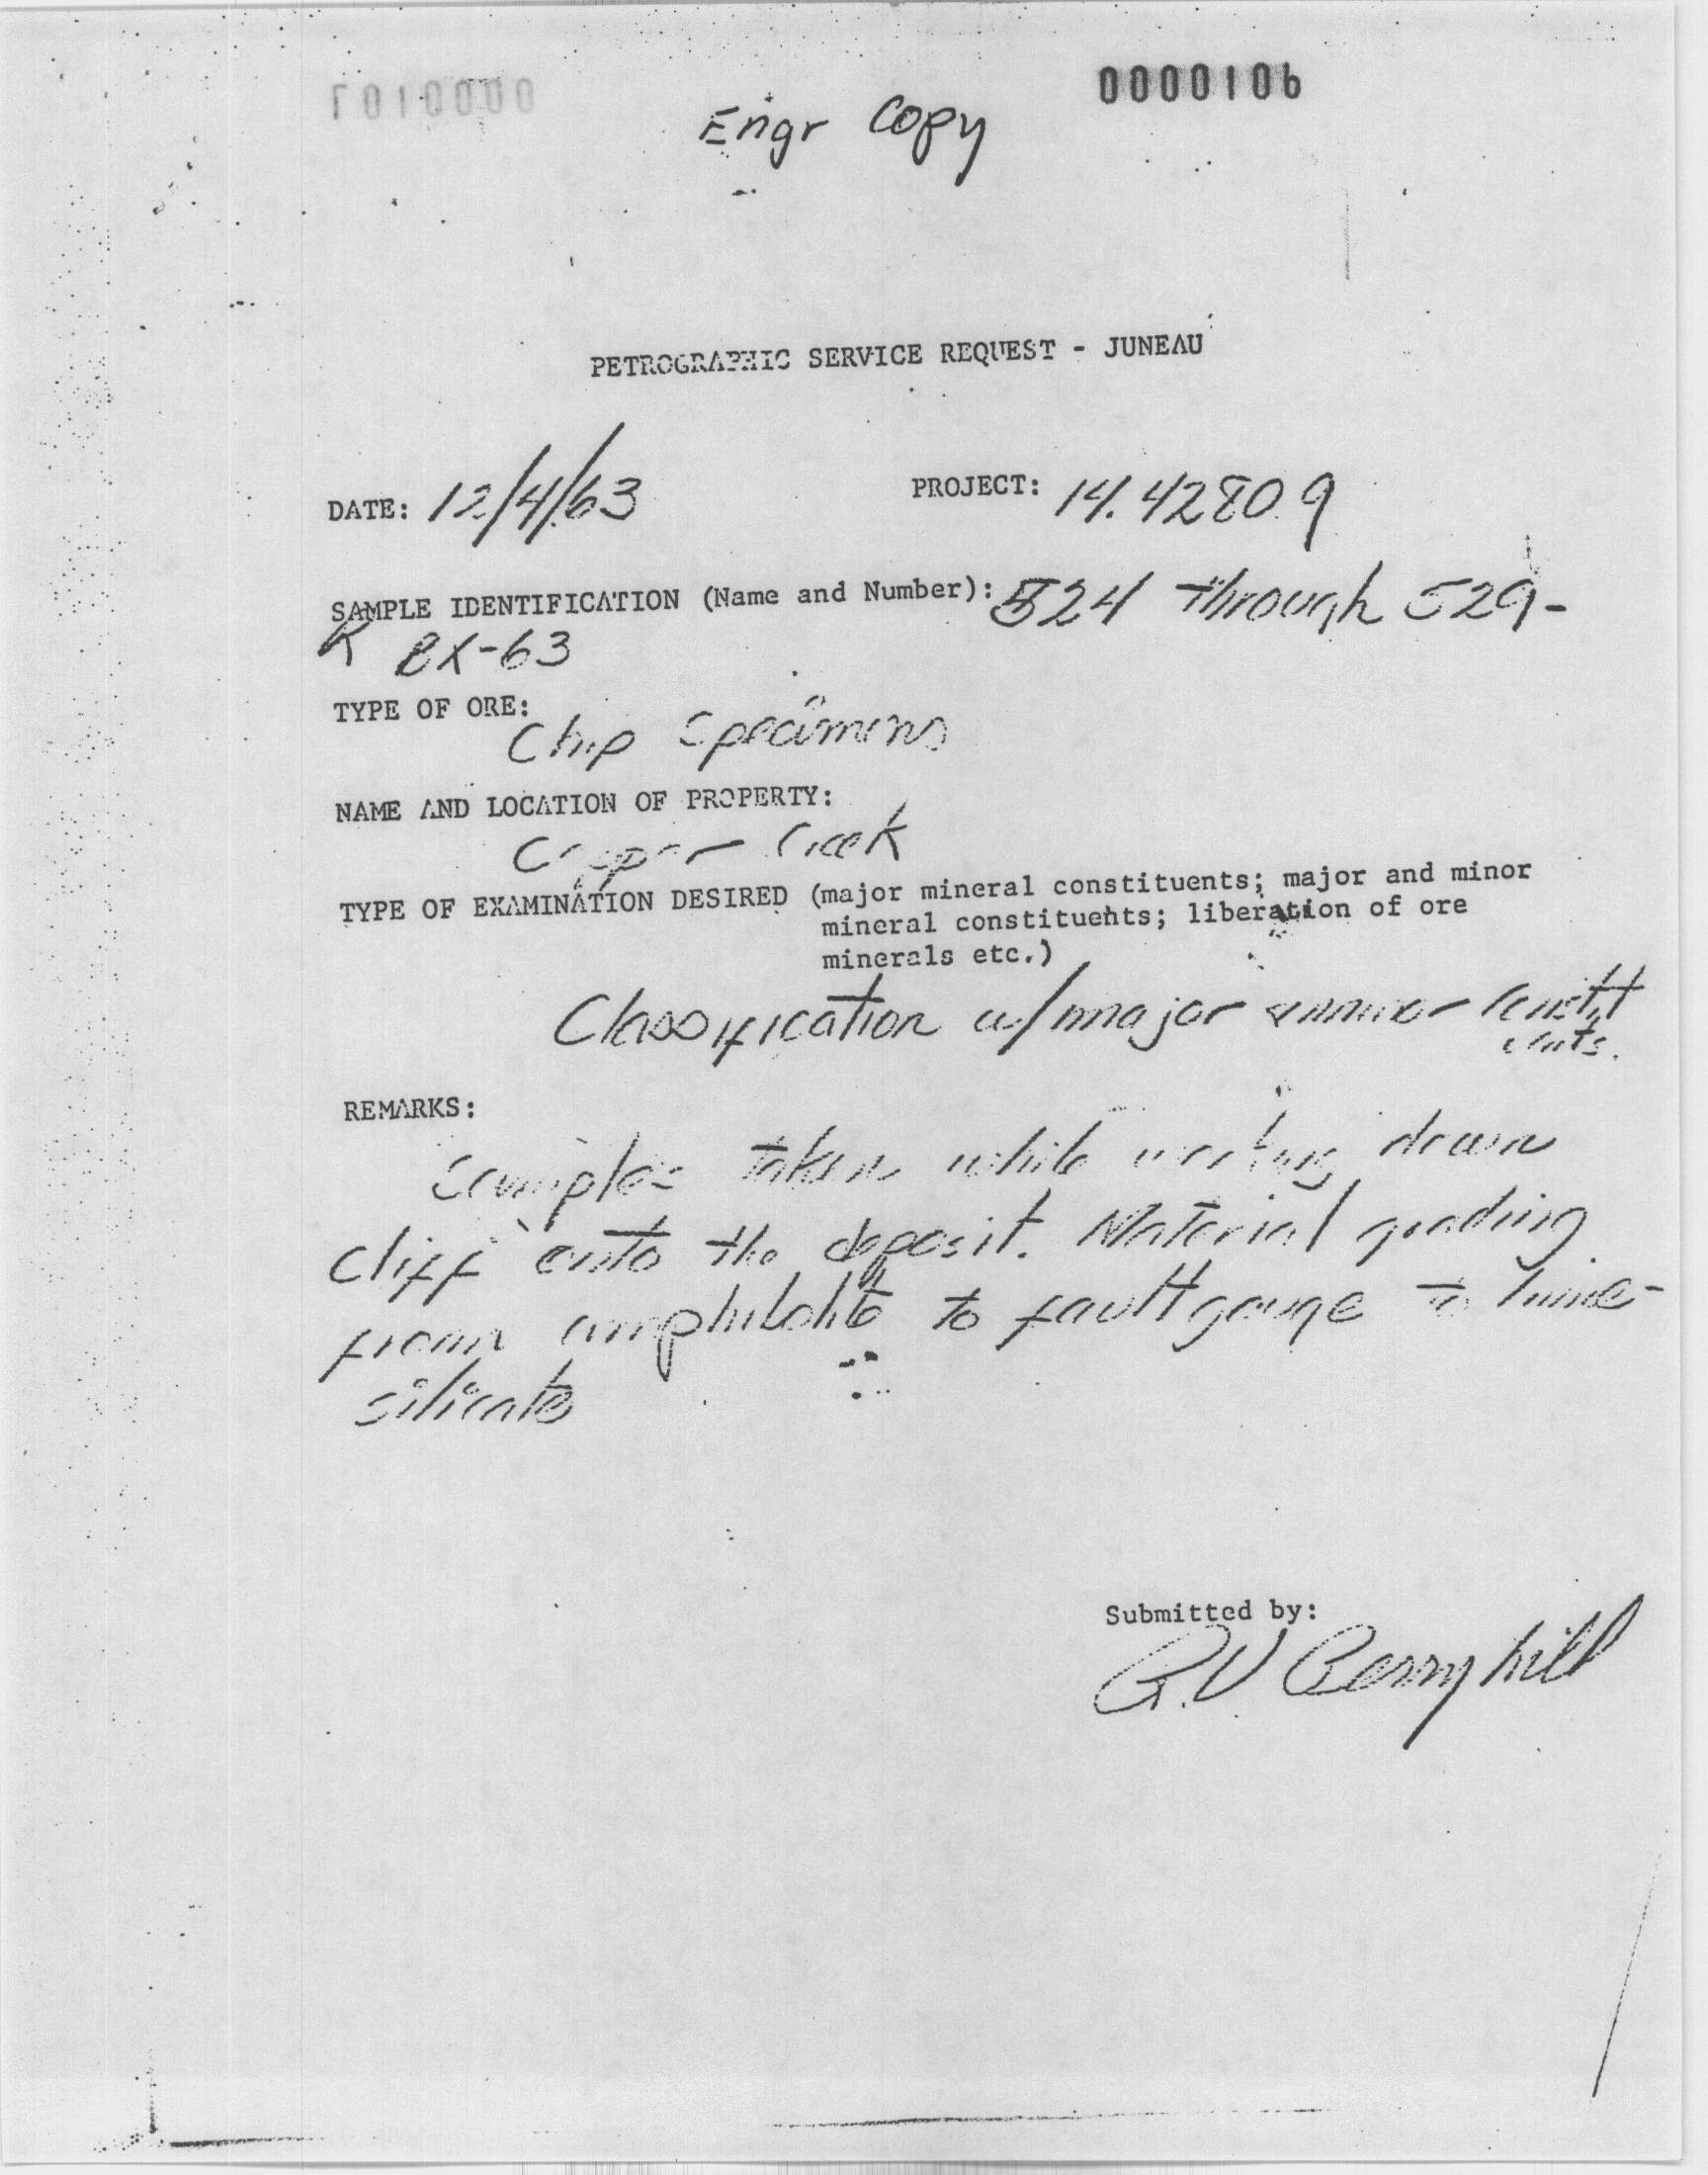 0000106
Engr Copy
PETROGRAPHIC SERVICE REQUEST - JUNEAU
DATE: 12/4/63 PROJECT: 14.42809
SAMPLE IDENTIFICATION (Name and Number): 524 through 529-
BX-63
TYPE OF ORE:
Chip Specimens
NAME AND LOCATION OF PROPERTY:
Copper Creek
TYPE OF EXAMINATION DESIRED (major mineral constituents; major and minor
mineral constituents; liberation of ore
minerals etc.)
Classification w/major & minor constit
uents.
REMARKS:
Samples taken while working down
cliff onto the deposit. Material grading
from amphibolite to fault gouge to lime-
silicate
Submitted by:
R.V Berryhill